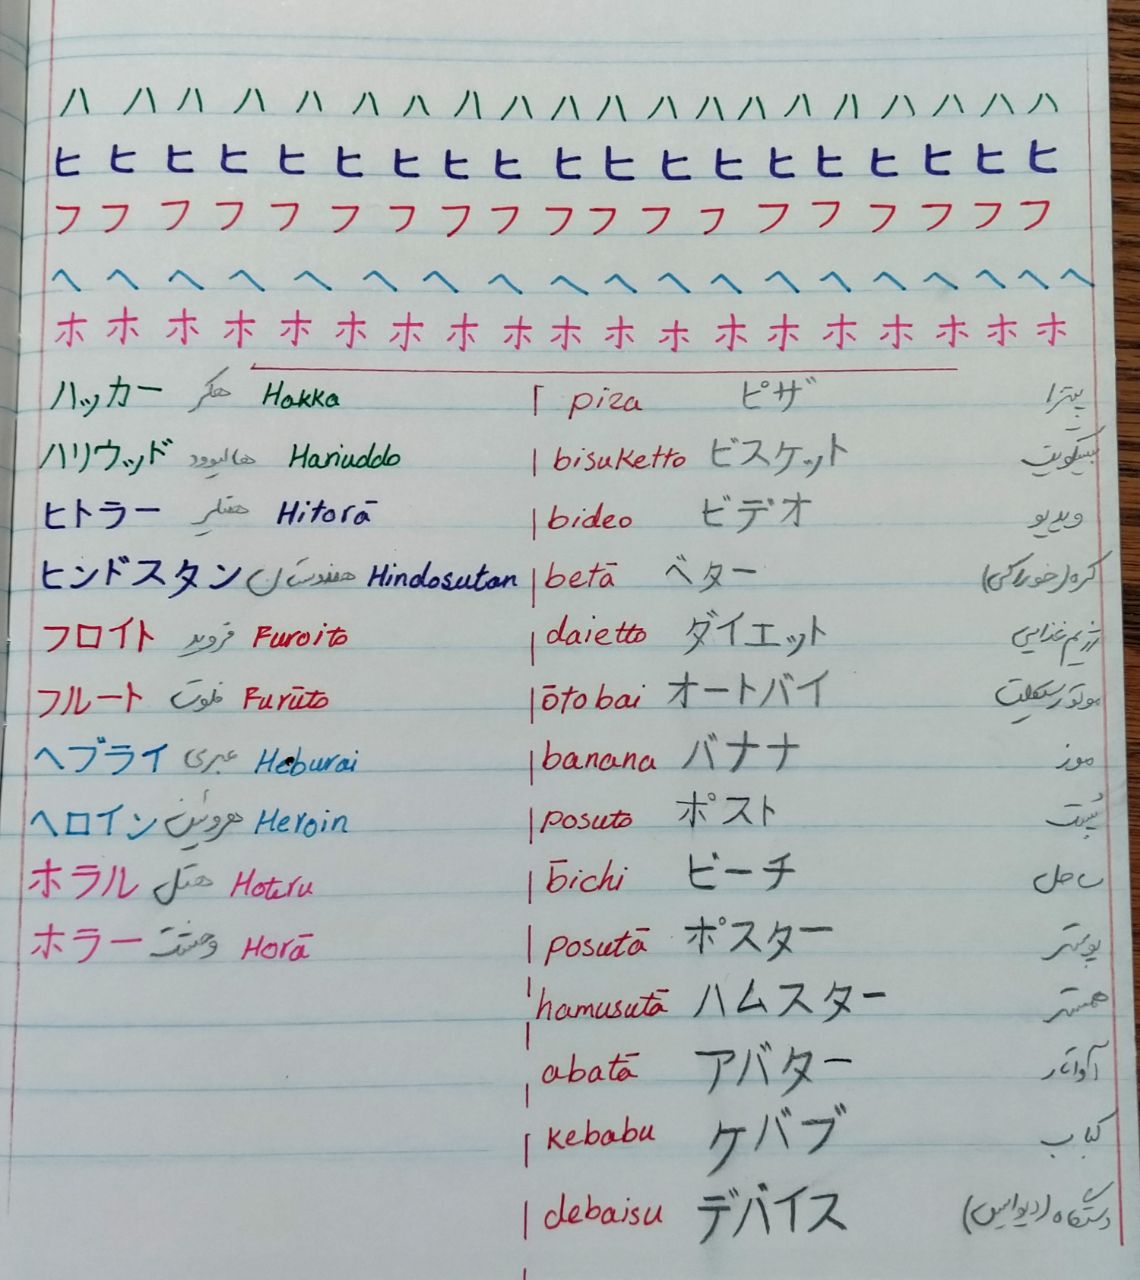 ハ ハ ハ ハ ハ ハ ハ ハ ハ ハ ハ ハ ハ ハ ハ ハ ハ ハ ハ ハ
ヒ ヒ ヒ ヒ ヒ ヒ ヒ ヒ ヒ ヒ ヒ ヒ ヒ ヒ ヒ ヒ ヒ ヒ ヒ
フ フ フ フ フ フ フ フ フ フ フ フ フ フ フ フ フ フ フ
ヘ ヘ ヘ ヘ ヘ ヘ ヘ ヘ ヘ ヘ ヘ ヘ ヘ ヘ ヘ ヘ ヘ ヘ ヘ
ホ ホ ホ ホ ホ ホ ホ ホ ホ ホ ホ ホ ホ ホ ホ ホ ホ ホ ホ
ハッカー هکر Hakka
ハリウッド هالیوود Hariuddo
ヒトラー هیتلر Hitorā
ヒンドスタン هندوستان Hindosutan
フロイト فروید Furoito
フルート فلوت Furūto
ヘブライ عبری Heburai
ヘロイン هروئین Heroin
ホラル هتل Hoteru
ホラー وحشت Horā
piza ピザ پیتزا
bisuketto ビスケット بیسکویت
bideo ビデオ ویدیو
betā ベター کره (خوراکی)
daietto ダイエット رژیم غذایی
ōtobai オートバイ موتورسیکلت
banana バナナ موز
posuto ポスト پُست
bīchi ビーチ ساحل
posutā ポスター پوستر
hamusutā ハムスター همستر
abatā アバター آواتار
kebabu ケバブ کباب
debaisu デバイス دستگاه (دیوایس)